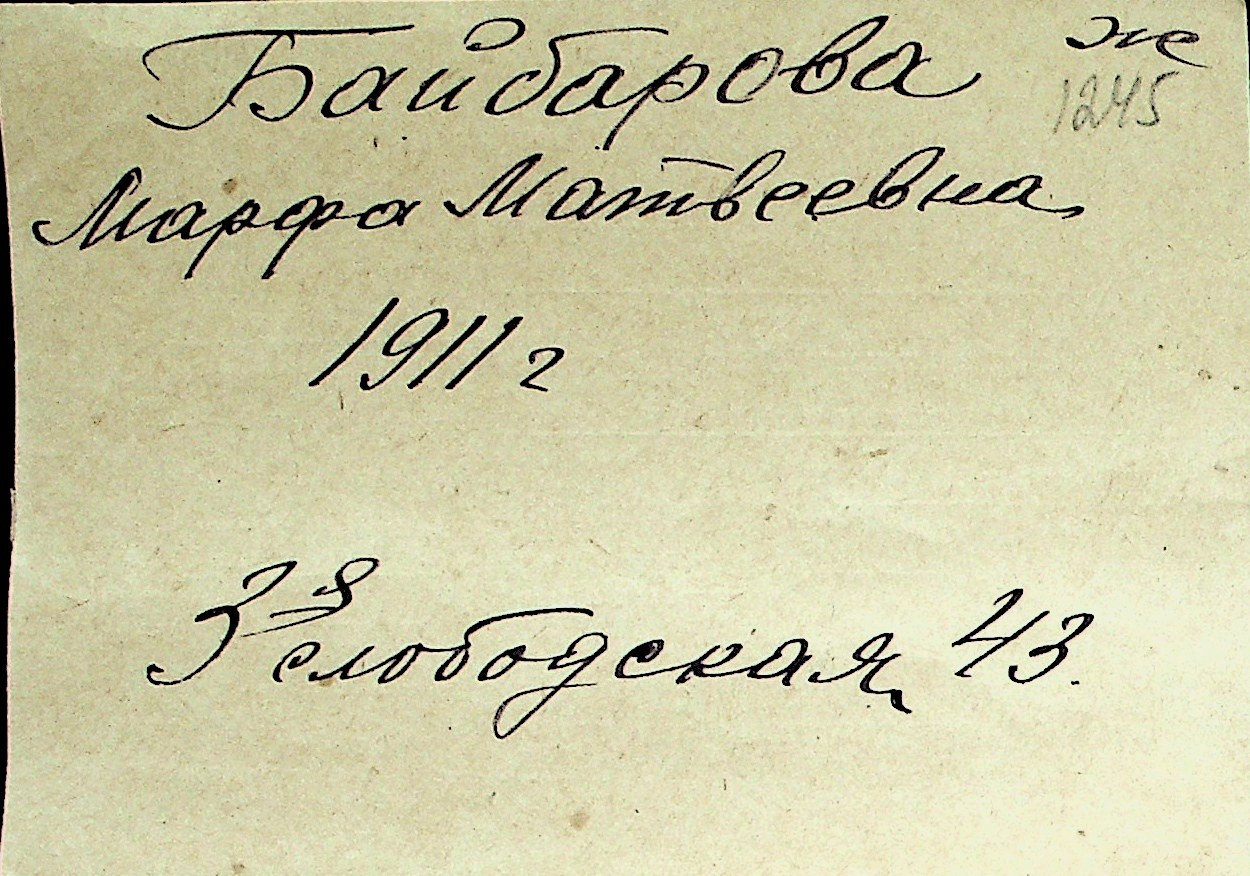 Байбарова же
1245
Марфа Матвеевна
1911 г
3я слободская, 43.